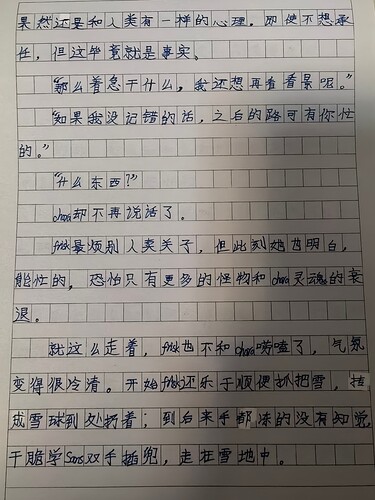 果然还是和人类有一样的心理。即使不想承
任，但这毕竟就是事实。
“那么着急干什么，我还想再看看景呢。”
“如果我没记错的话，之后的路可有你忙
的。”
“什么东西？”
chara却不再说话了。
frisk最烦别人卖关子，但此刻她也明白，
能忙的，恐怕只有更多的怪物和chara灵魂的衰
退。
就这么走着，frisk也不和chara唠嗑了，气氛
变得很冷清。开始frisk还乐于顺便抓把雪，揉
成雪球到处扔着；到后来手都冻的没有知觉，
干脆学Sans双手插兜，走在雪地中。